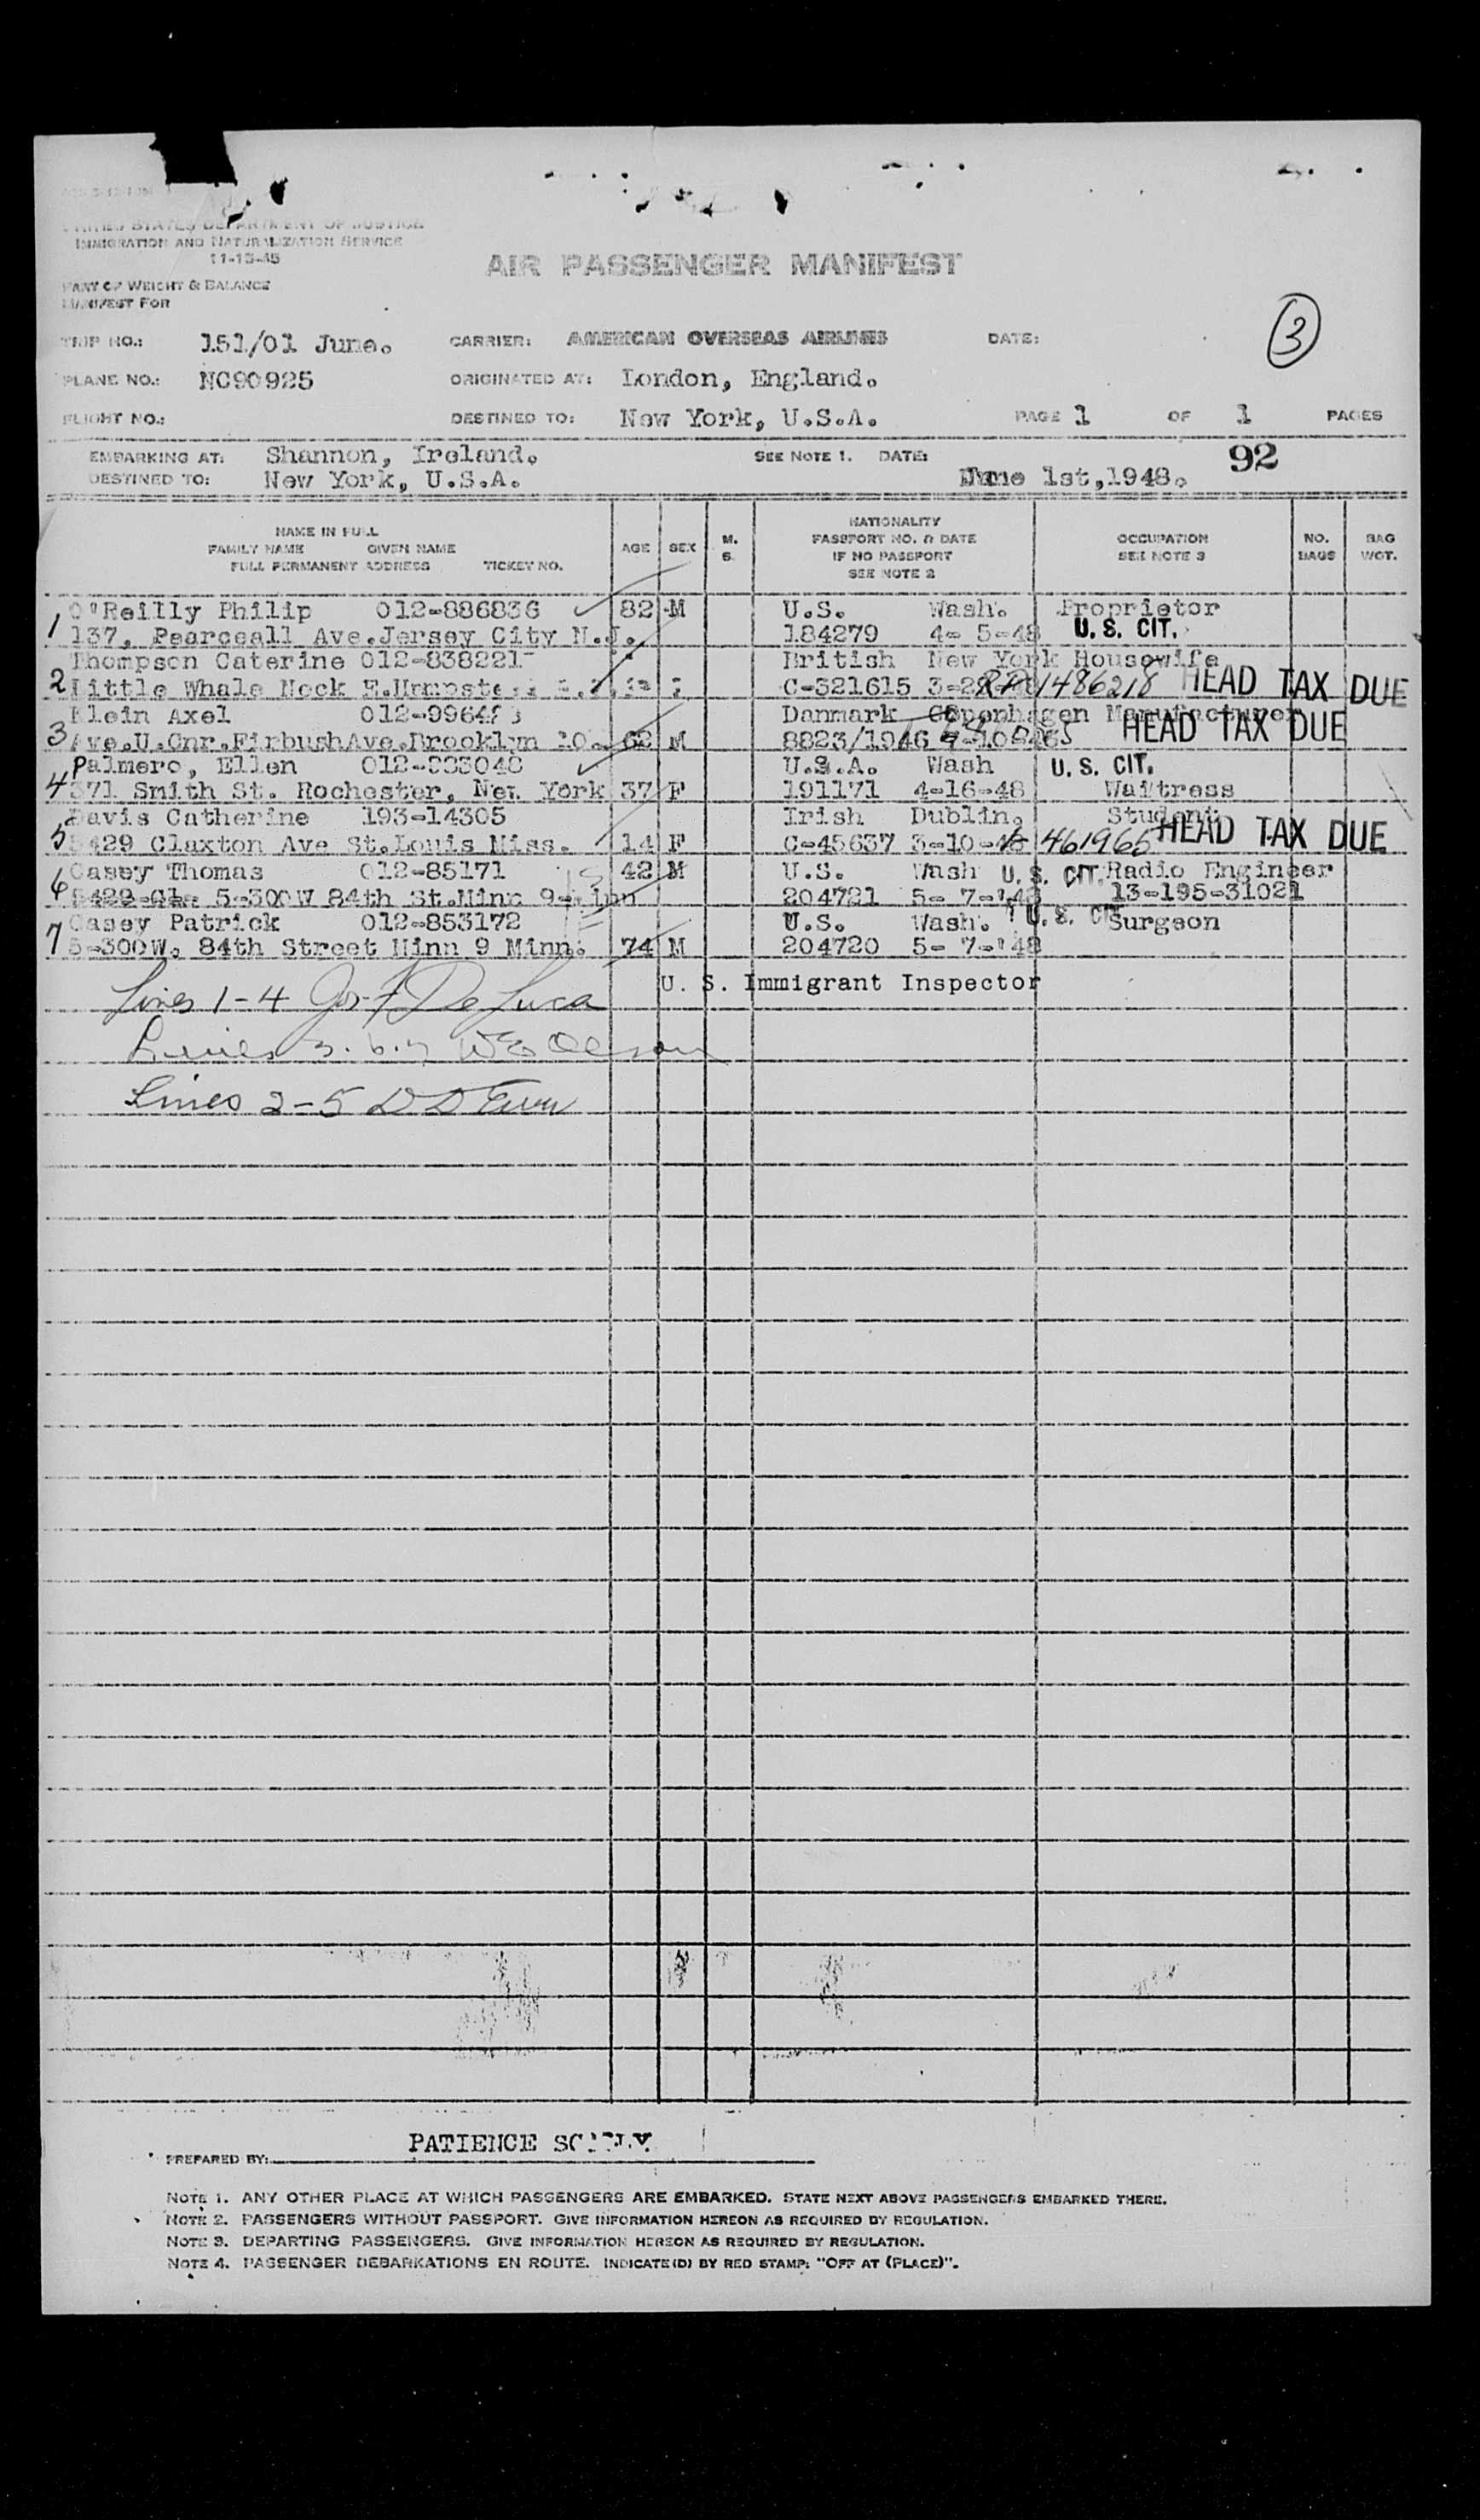 UNITED STATES DEPARTMENT OF JUSTICE
IMMIGRATION AND NATURALIZATION SERVICE
11-15-45
AIR PASSENGER MANIFEST
PART OF WEIGHT & BALANCE
MANIFEST FOR
3
TRIP NO.: 151/01 June. CARRIER: AMERICAN OVERSEAS AIRLINES DATE:
PLANE NO.: NC90925 ORIGINATED AT: London, England.
FLIGHT NO.: DESTINED TO: New York, U.S.A. PAGE 1 OF 1 PAGES
EMBARKING AT: Shannon, Ireland. SEE NOTE 1. DATE: June 1st,1948. 92
DESTINED TO: New York, U.S.A.
NAME IN FULL
FAMILY NAME GIVEN NAME
FULL PERMANENT ADDRESS TICKET NO.
AGE SEX M. S.
NATIONALITY
PASSPORT NO. & DATE
IF NO PASSPORT
SEE NOTE 2
OCCUPATION
SEE NOTE 3
NO. BAGS
BAG WGT.
1 O'Reilly Philip 012-886836 82 M U.S. Wash. Proprietor
137, Pearceall Ave.Jersey City N.J. 184279 4- 5-48 U. S. CIT.
Thompson Caterine 012-838221 British New York Housewife
2 Little Whale Neck E. C-321615 RP 1486218 HEAD TAX DUE
Klein Axel Danmark Copenhagen Manufacturer
3 Ave.U.Cnr.FirbushAve.Brooklyn 62 M 8823/1946 HEAD TAX DUE
Palmero, Ellen U.S.A. Wash U. S. CIT.
4 371 Smith St. Rochester, New York 37 F 191171 4-16-48 Waitress
Davis Catherine 193-14305 Irish Dublin. Student
5 5429 Claxton Ave St.Louis Miss. 14 F C-45637 3-10-48 461965 HEAD TAX DUE
6 Casey Thomas 012-85171 42 M U.S. Wash U. S. CIT. Radio Engineer
5-300W 84th St.Minn 9 204721 5- 7-'48 13-195-31021
Casey Patrick 012-853172 U.S. Wash. U. S. CIT Surgeon
7 5-300W. 84th Street Minn 9 Minn. 74 M 204720 5- 7-'48
U. S. Immigrant Inspector
Lines 1-4 Jos F De Luca
Lines 3. 6. 7 Olson
Lines 2-5 D D
PREPARED BY: PATIENCE
NOTE 1. ANY OTHER PLACE AT WHICH PASSENGERS ARE EMBARKED. STATE NEXT ABOVE PASSENGERS EMBARKED THERE.
NOTE 2. PASSENGERS WITHOUT PASSPORT. GIVE INFORMATION HEREON AS REQUIRED BY REGULATION.
NOTE 3. DEPARTING PASSENGERS. GIVE INFORMATION HEREON AS REQUIRED BY REGULATION.
NOTE 4. PASSENGER DEBARKATIONS EN ROUTE. INDICATE (D) BY RED STAMP: "OFF AT (PLACE)".